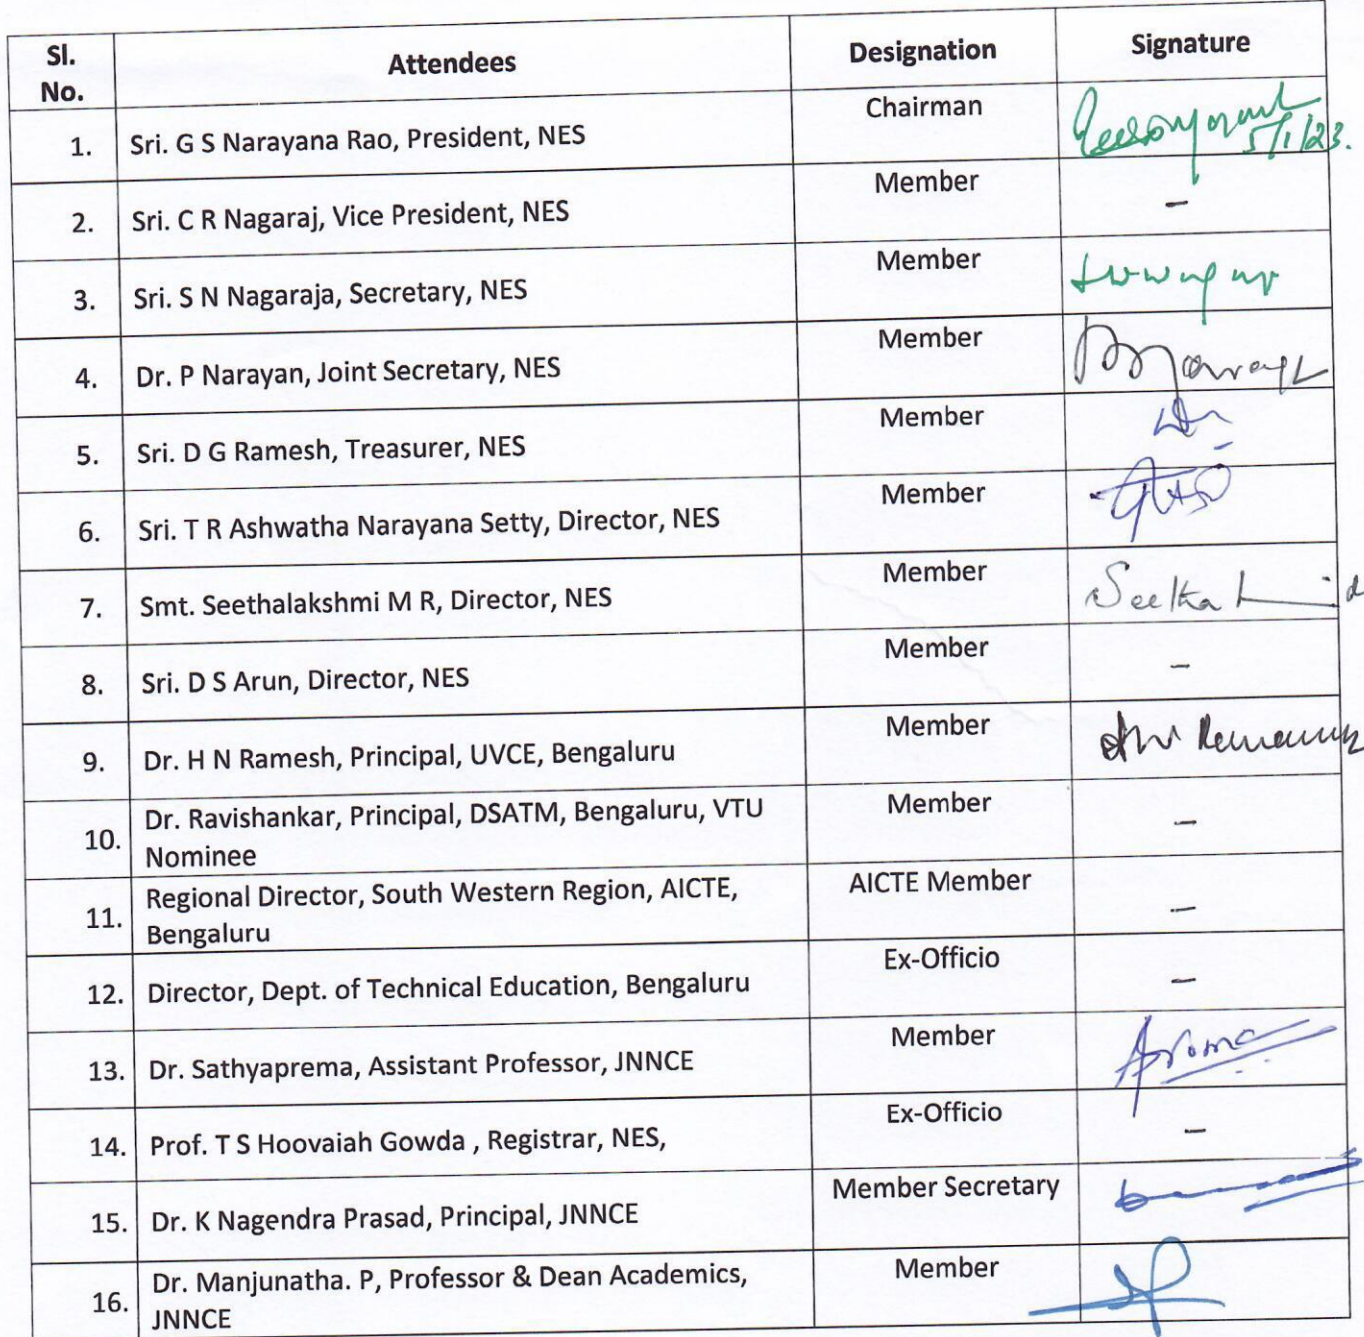 Sl.
No.
Attendees
Designation
Signature
1.
Sri. G S Narayana Rao, President, NES
Chairman
5/1/23.
2.
Sri. C R Nagaraj, Vice President, NES
Member
–
3.
Sri. S N Nagaraja, Secretary, NES
Member
4.
Dr. P Narayan, Joint Secretary, NES
Member
5.
Sri. D G Ramesh, Treasurer, NES
Member
6.
Sri. T R Ashwatha Narayana Setty, Director, NES
Member
7.
Smt. Seethalakshmi M R, Director, NES
Member
8.
Sri. D S Arun, Director, NES
Member
–
9.
Dr. H N Ramesh, Principal, UVCE, Bengaluru
Member
10.
Dr. Ravishankar, Principal, DSATM, Bengaluru, VTU
Nominee
Member
–
11.
Regional Director, South Western Region, AICTE,
Bengaluru
AICTE Member
–
12.
Director, Dept. of Technical Education, Bengaluru
Ex-Officio
–
13.
Dr. Sathyaprema, Assistant Professor, JNNCE
Member
14.
Prof. T S Hoovaiah Gowda , Registrar, NES,
Ex-Officio
–
15.
Dr. K Nagendra Prasad, Principal, JNNCE
Member Secretary
16.
Dr. Manjunatha. P, Professor & Dean Academics,
JNNCE
Member